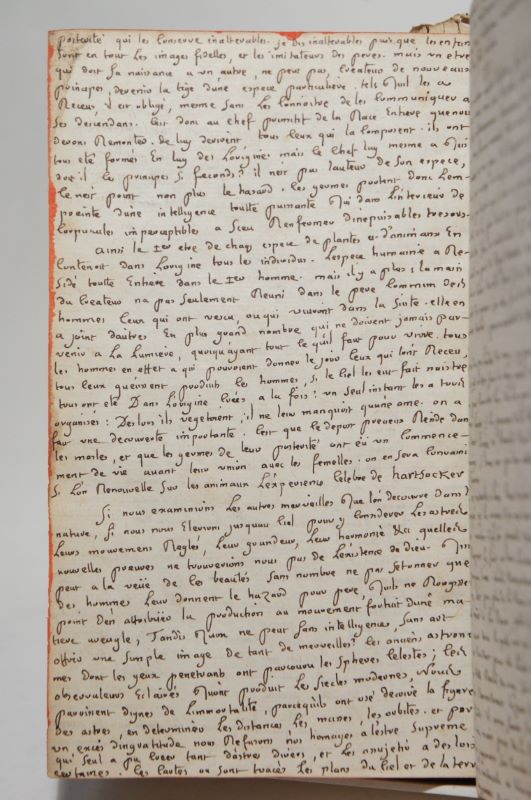 posterité qui les conserve inalterables. je dis inalterables puis que les enfans
sont en tout les images fidelles, et les imitateurs des peres. mais un etre
qui doit sa naissance a un autre, ne peut pas, createur de nouveaux
principes, devenir la tige d'une espece particuliere. tels quil les a
Receu, il est obligé, meme sans les connoitre de les communiquer a
ses descendans. cest donc au chef primitif de la Race Entiere que nous
devons Remonter. de luy derivent, tous ceux qui la composent. ils ont
tous eté formés En luy des Lorigine. mais le chef luy meme a
due il les principes si feconds? il nest pas lauteur de son espece,
le nest point non plus le hazard. les germes portent donc Lem-
preinte dune intelligence toutte puissante qui dans Linterieur de
corpuscules imperceptibles a sceu Renfermer dinepuisables tresors.
ainsi le 1er etre de chaq espece de plantes et d'animaux En
contenoit dans Lorigine tous les individus. Lespece humaine a Re-
sidé toutte Entiere dans le 1er homme. mais il y a plus: la main
du createur na pas seulement Reuni dans le pere commun des
hommes ceux qui ont vecu, ou qui vivront dans la suite. elle en
a joint dautres En plus grand nombre qui ne doivent jamais par-
venir a La Lumiere, quoiquayant tout ce quil faut pour vivre. tous
les hommes en effet a qui pouvoient donner le jour ceux qui lont Receu,
tous ceux queussent produits les hommes, si le ciel les eut fait naistre
tous ont eté Dans Lorigine créés a la fois: un seul instant les a tous
organisés: Des lors ils vegetoient, il ne leur manquoit quune ame. on a
fait une decouverte importante. cest que le depot pretieux Reside dans
les masles, et que les germes de leur posterité ont eu un commence-
ment de vie avant leur union avec les femelles. on en sera convaincu
si Lon Renouvelle sur les animaux Lexperience celebre de hartsocker
Si nous examinions les autres merveilles que Lon decouvre dans la
nature, si nous nous Elevions jusquau ciel pour y considerer les astres
Leurs mouvemens Reglés, Leur grandeur, Leur harmonie &a quelles
nouvelles preuves ne trouverions nous pas de Lexistence de dieu.
peut a la veüe de ces beautés sans nombre ne pas setonner que
des hommes Leur donnent le hazard pour pere, quils ne Rougissent
point Den attribuer la production au mouvement fortuit dune ma-
tiere aveugle, Tandis quon ne peut sans intelligence, sans art
offrir une simple image de tant de merveilles? les anciens astrono
mes dont les yeux penetrans ont parcouru les spheres celestes; les
observateurs Eclairés quont produit les siecles modernes, nous
paroissent dignes de Limmortalité, parcequils ont osé decrire la figure
des astres, en determiner les distances, les masses, les orbites. et par
un excés dingratitude nous Refusons nos homages a lestre Supreme
qui seul a pu créer tant dastres divers, et les assujetir a des loix
certaines. les cartes ou sont tracés les plans du ciel et de la terre